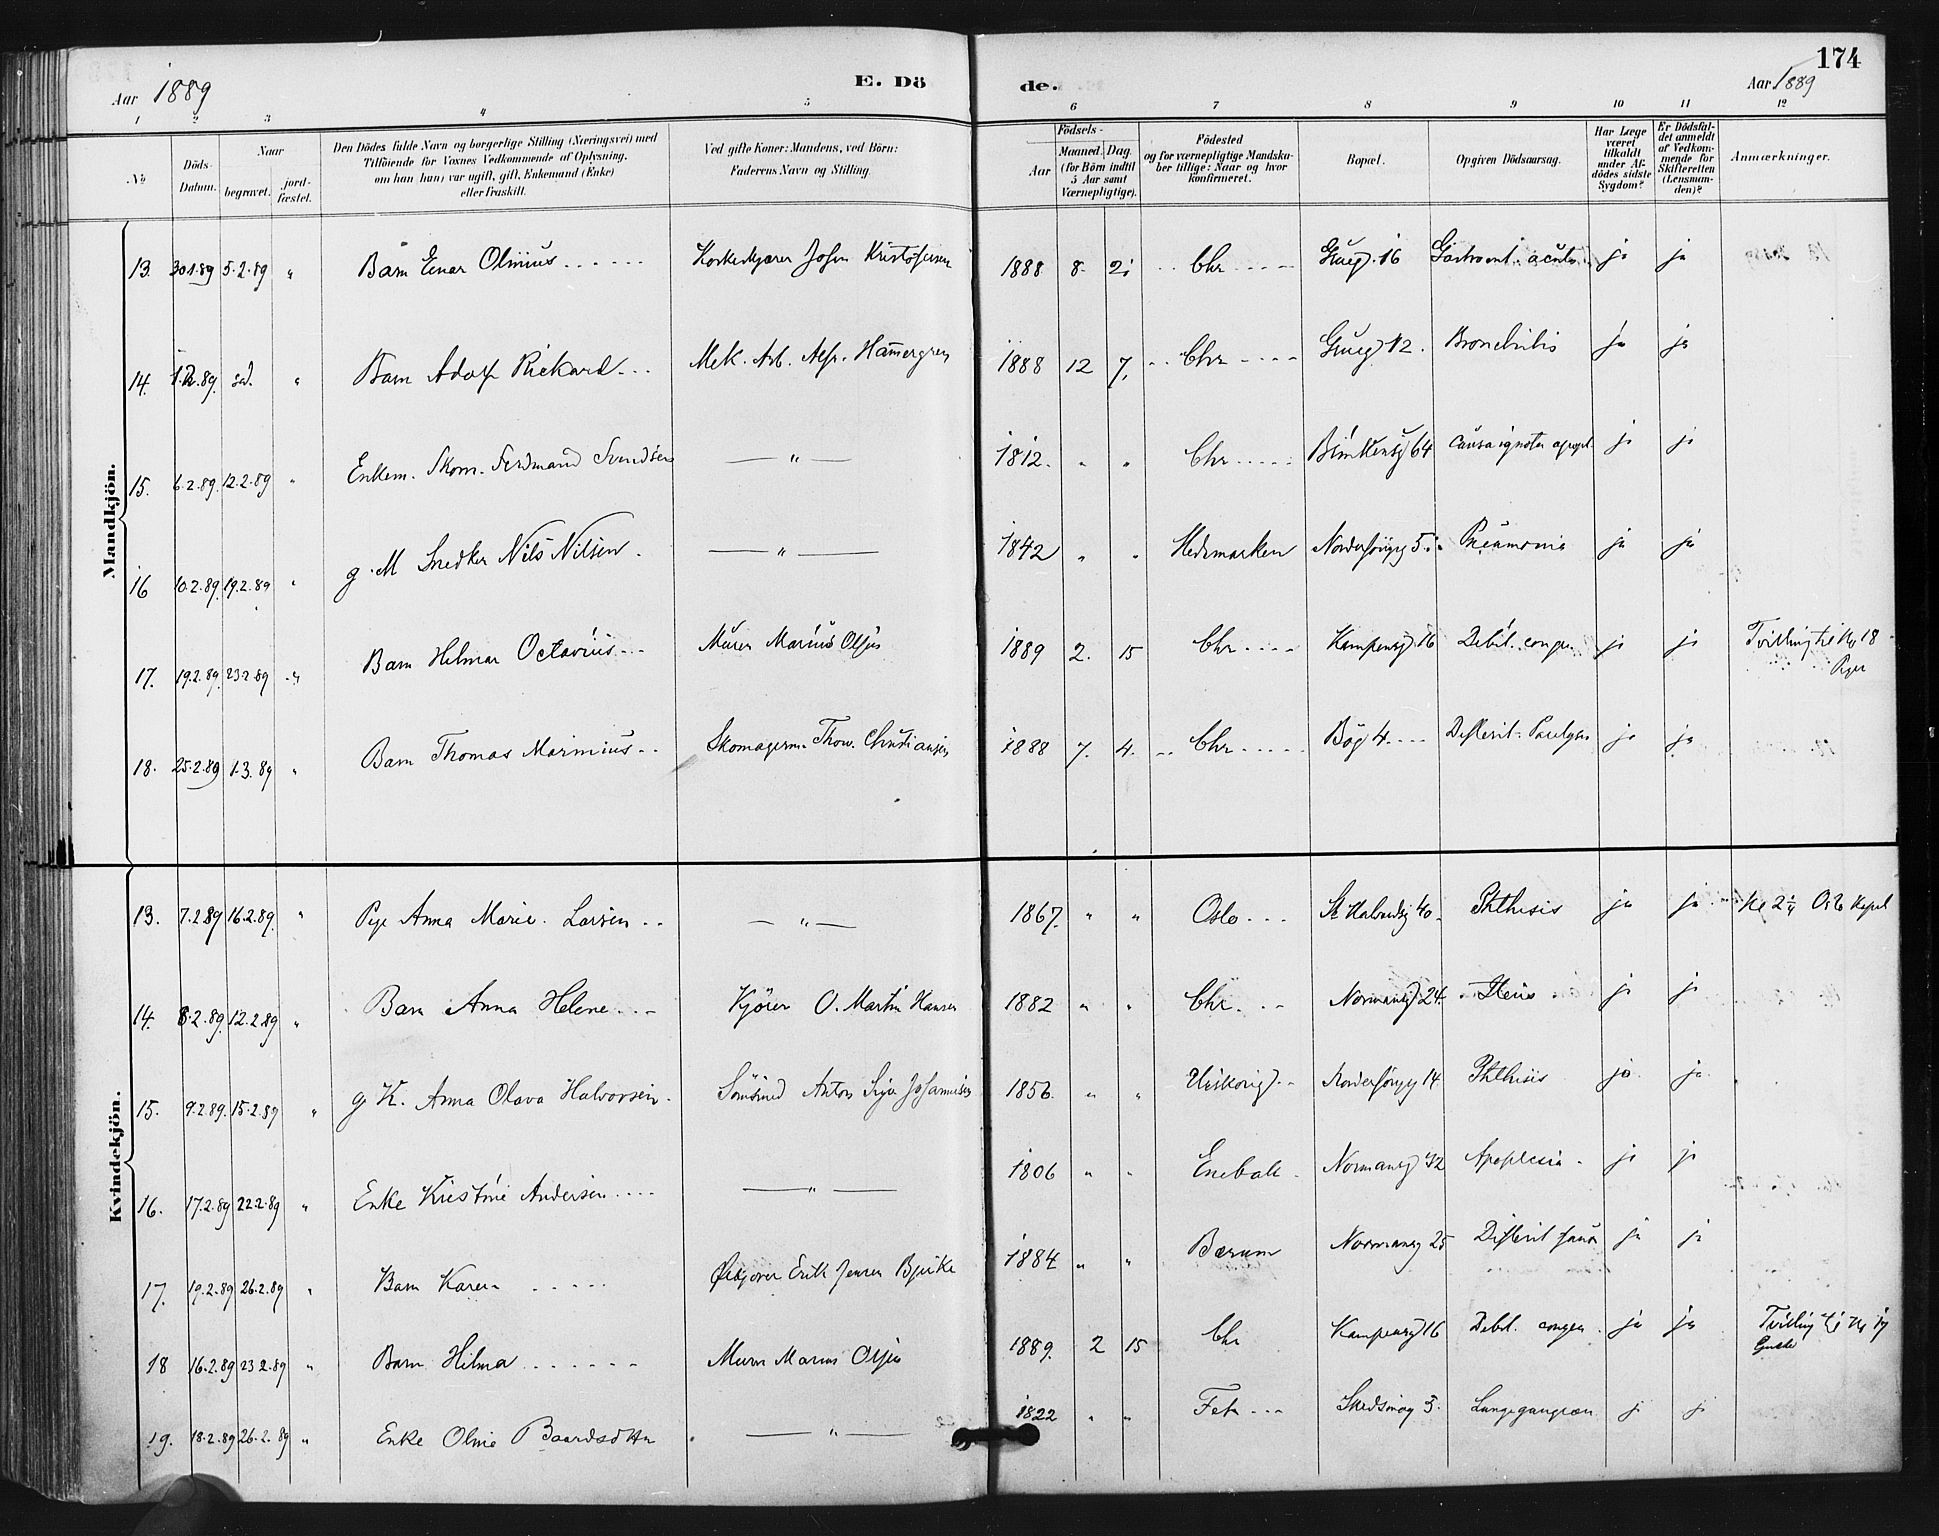 174
Aar 1889
E. Dö
de.
Aar 1889
1 2 3 4 5 6 7 8 9 10 11 12
№
Döds-
Datum.
Naar
begravet.
jord-
fæstet.
Den Dödes fulde Navn og borgerlige Stilling (Næringsvei) med
Tilföiende for Voxnes Vedkommende af Oplysning,
om han (hun) var ugift, gift, Enkemand (Enke)
eller fraskilt.
Ved gifte Koner: Mandens, ved Börn:
Faderens Navn og Stilling.
Födsels-
Aar
Maaned. Dag.
(for Börn indtil
5 Aar samt
Værnepligtige).
Födested
og for værnepligtige Mandska-
ber tillige: Naar og hvor
konfirmeret.
Bopæl.
Opgiven Dödsaarsag.
Har Læge
været
tilkaldt
under Af-
dödes sidste
Sygdom?
Er Dödsfal-
det anmeldt
af Vedkom-
mende for
Skifteretten
(Lensman-
den)?
Anmærkninger.
Mandkjön.
13. 30.1.89 5.2.89 " Barn Einar Olinius Johan Kristofersen 1888 8. 21 Chr Grueg. 16 Gastroent. acuta ja ja
14. 1.2.89. sad. " Barn Adolf Rickard Mek. Arb. Alfr. Hamergren 1888 12 7. Chr Grueg 12. Bronchitis ja ja
15. 6.2.89. 12.2.89 " Enkem. Skom. Ferdinand Svendsen — " — 1812. " " Chr 64 causa ignota apopl. ja ja
16 10.2.89. 19.2.89 " g. M Snedker Nils Nilsen. — " — 1842 " " Hedemarken Pneumonia ja ja
17. 19.2.89. 23.2.89 " Barn Hilmar Octavius Murer Marius Olsen 1889 2. 15 Chr Kampensg. 16 Debil. congen. ja ja Tvilling til No 18
Piger
18. 25.2.89 1.3.89 " Barn Thomas Marinius Skomagerm. Thorv. Christiansen 1888 7. 4. Chr Bög 4 Difterit ja ja
Kvindekjön.
13. 7.2.89 16.2.89. " Pige Anna Marie Larsen — " — 1867. " " Oslo St Halvardsg 40 Phthisis ja ja Kl 2¼ Oslo Kapel
14. 8.2.89. 12.2.89 " Barn Anna Helene Kjörer O. Martin Hansen 1882 " " Chr. Normansg 24. Ileus ja ja
15. 9.2.89. 15.2.89 " g. K. Anna Olava Halvorsen. Anton Johannesen 1856. " " 14 Phthisis ja ja
16. 17.2.89 22.2.89 " Enke Kristine Andersen — " — 1806 " " Enebak Normansg 42 Apoplexia ja ja
17. 19.2.89 26.2.89 " Barn Karen Erik Jensen Bjerke 1884 " " Bærum Normansg 25 Difterit ja ja
18 16.2.89 23.2.89 " Barn Hilma Murer Marius Olsen 1889. 2 15 Chr Kampensg 16 Debil. congen. ja ja Tvilling til No 17
Gutter
19. 18.2.89 26.2.89 " Enke Oline Baardsdttr — " — 1822 " " Fet Skedsmog 3. Lungegangræn ja ja